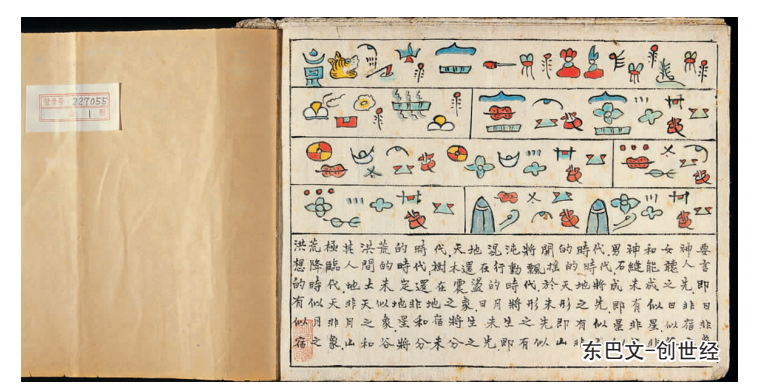 登录号 227055
1
洪荒極其洪荒的時代,天地混沌將開的時代,男神和女神要
想降臨人間的時代,樹木還在行動飄搖的時代,石縫能聽人言
的時代,地土未定還在震盪的時代,於天地將成未成之先,即
有似天非天似地非地之象,日月將形未形之先,即有似日非日
似月非月之象,星和宿將生未生之先即有似星非星,似宿非
宿之象,山和谷將分未分之先,即有似山非
东巴文-创世经